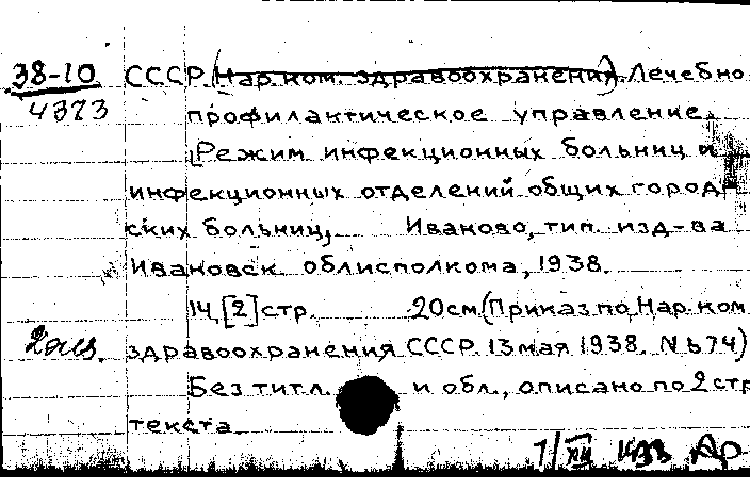 38-10 СССР. (Нар. ком. здравоохранения). Лечебно
4373 профилактическое управление.
Режим инфекционных больниц и
инфекционных отделений общих город-
ских больниц, Иваново, тип. изд-ва
Ивановск. облисполкома, 1938.
14, [2] стр. 20 см. (Приказ по Нар. ком
2 экз. здравоохранения СССР. 13 мая 1938. № 674)
Без титл. и обл., описано по 2 стр
текста
7/XII